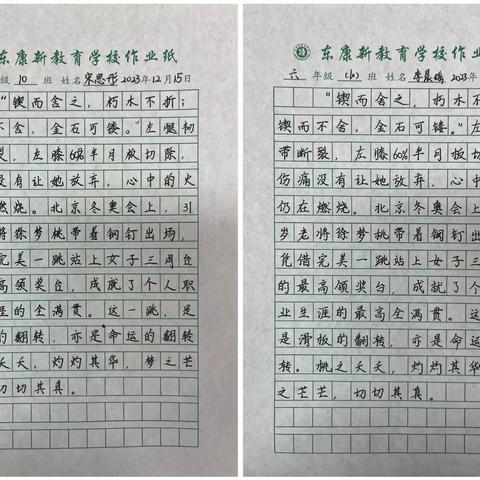 东康新教育学校作业纸
级 10 班 姓名 宋思彤 2023年12月15日
“锲而舍之,朽木不折;
不舍,金石可镂。”左腿韧
裂,左膝60%半月板切除,
没有让她放弃,心中的火
燃烧。北京冬奥会上,31
将徐梦桃带着钢钉出场,
完美一跳站上女子三周台
高领奖台,成就了个人职
涯的全满贯。这一跳,是
的翻转,亦是命运的翻转
夭夭,灼灼其华,梦之芒
切切其真。
东康新教育学校作业
六 年级 (10) 班 姓名 李晨 2023年
“锲而舍之,朽木不
锲而不舍,金石可镂。”左
带断裂,左膝60%半月板切
伤痛没有让她放弃,心中
仍在燃烧。北京冬奥会上
岁老将徐梦桃带着钢钉出
凭借完美一跳站上女子三
的最高领奖台,成就了个
业生涯的最高全满贯。这
是滑板的翻转,亦是命运
转。桃之夭夭,灼灼其华
之芒芒,切切其真。